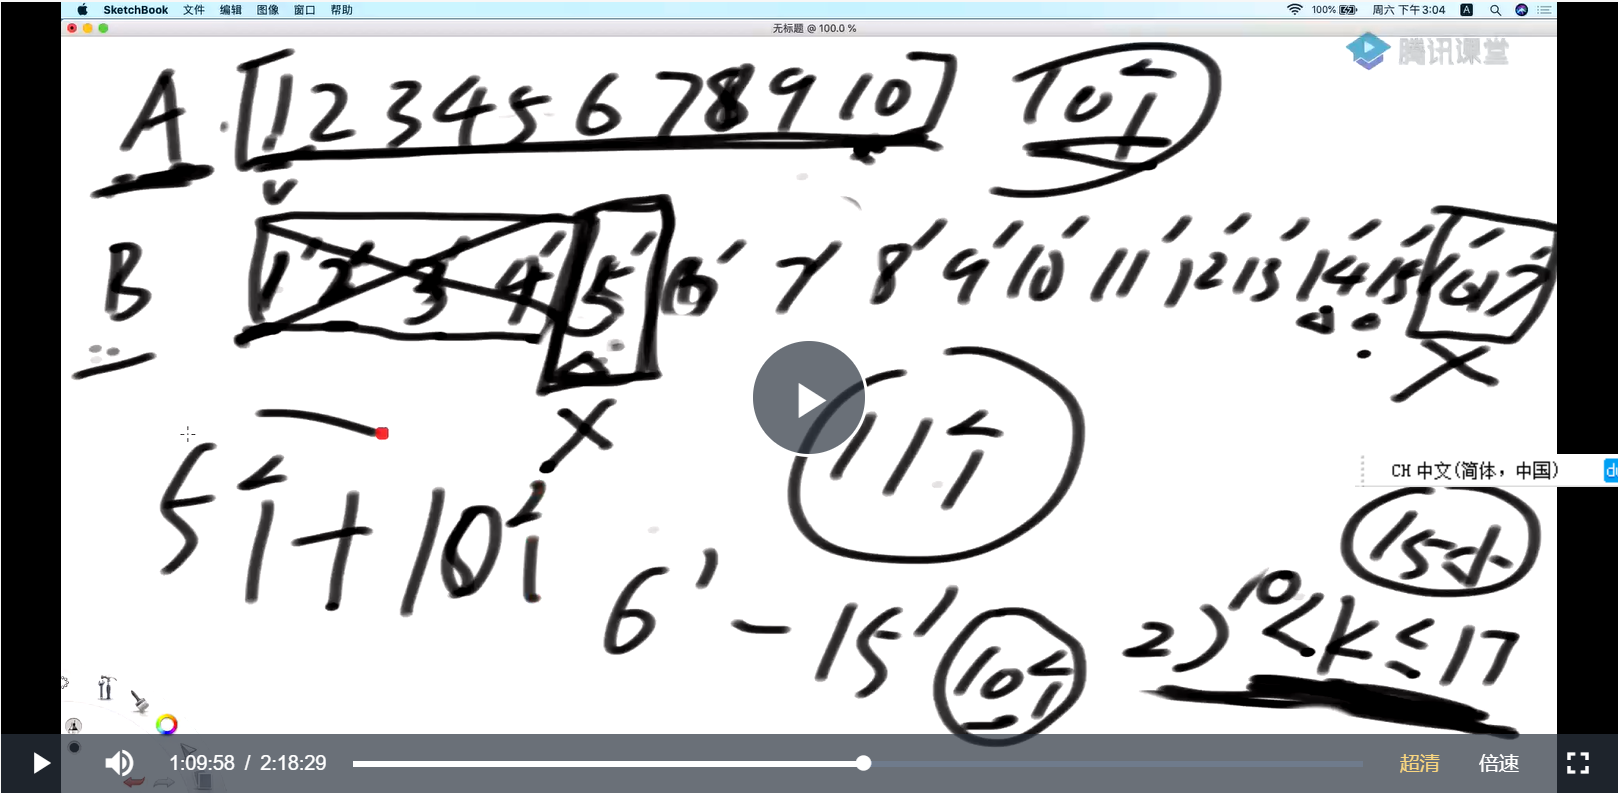 SketchBook 文件 编辑 图像 窗口 帮助 100% 周六 下午3:04 A
无标题 @ 100.0 %
腾讯课堂
A [1 2 3 4 5 6 7 8 9 10] 10个
B 1' 2' 3' 4' 5' 6' 7' 8' 9' 10' 11' 12' 13' 14' 15' 16' 17'
X X
11个
CH 中文(简体，中国)
5个+10个
15小
6' - 15' 10个
2) 10<k≤17
1:09:58 / 2:18:29 超清 倍速